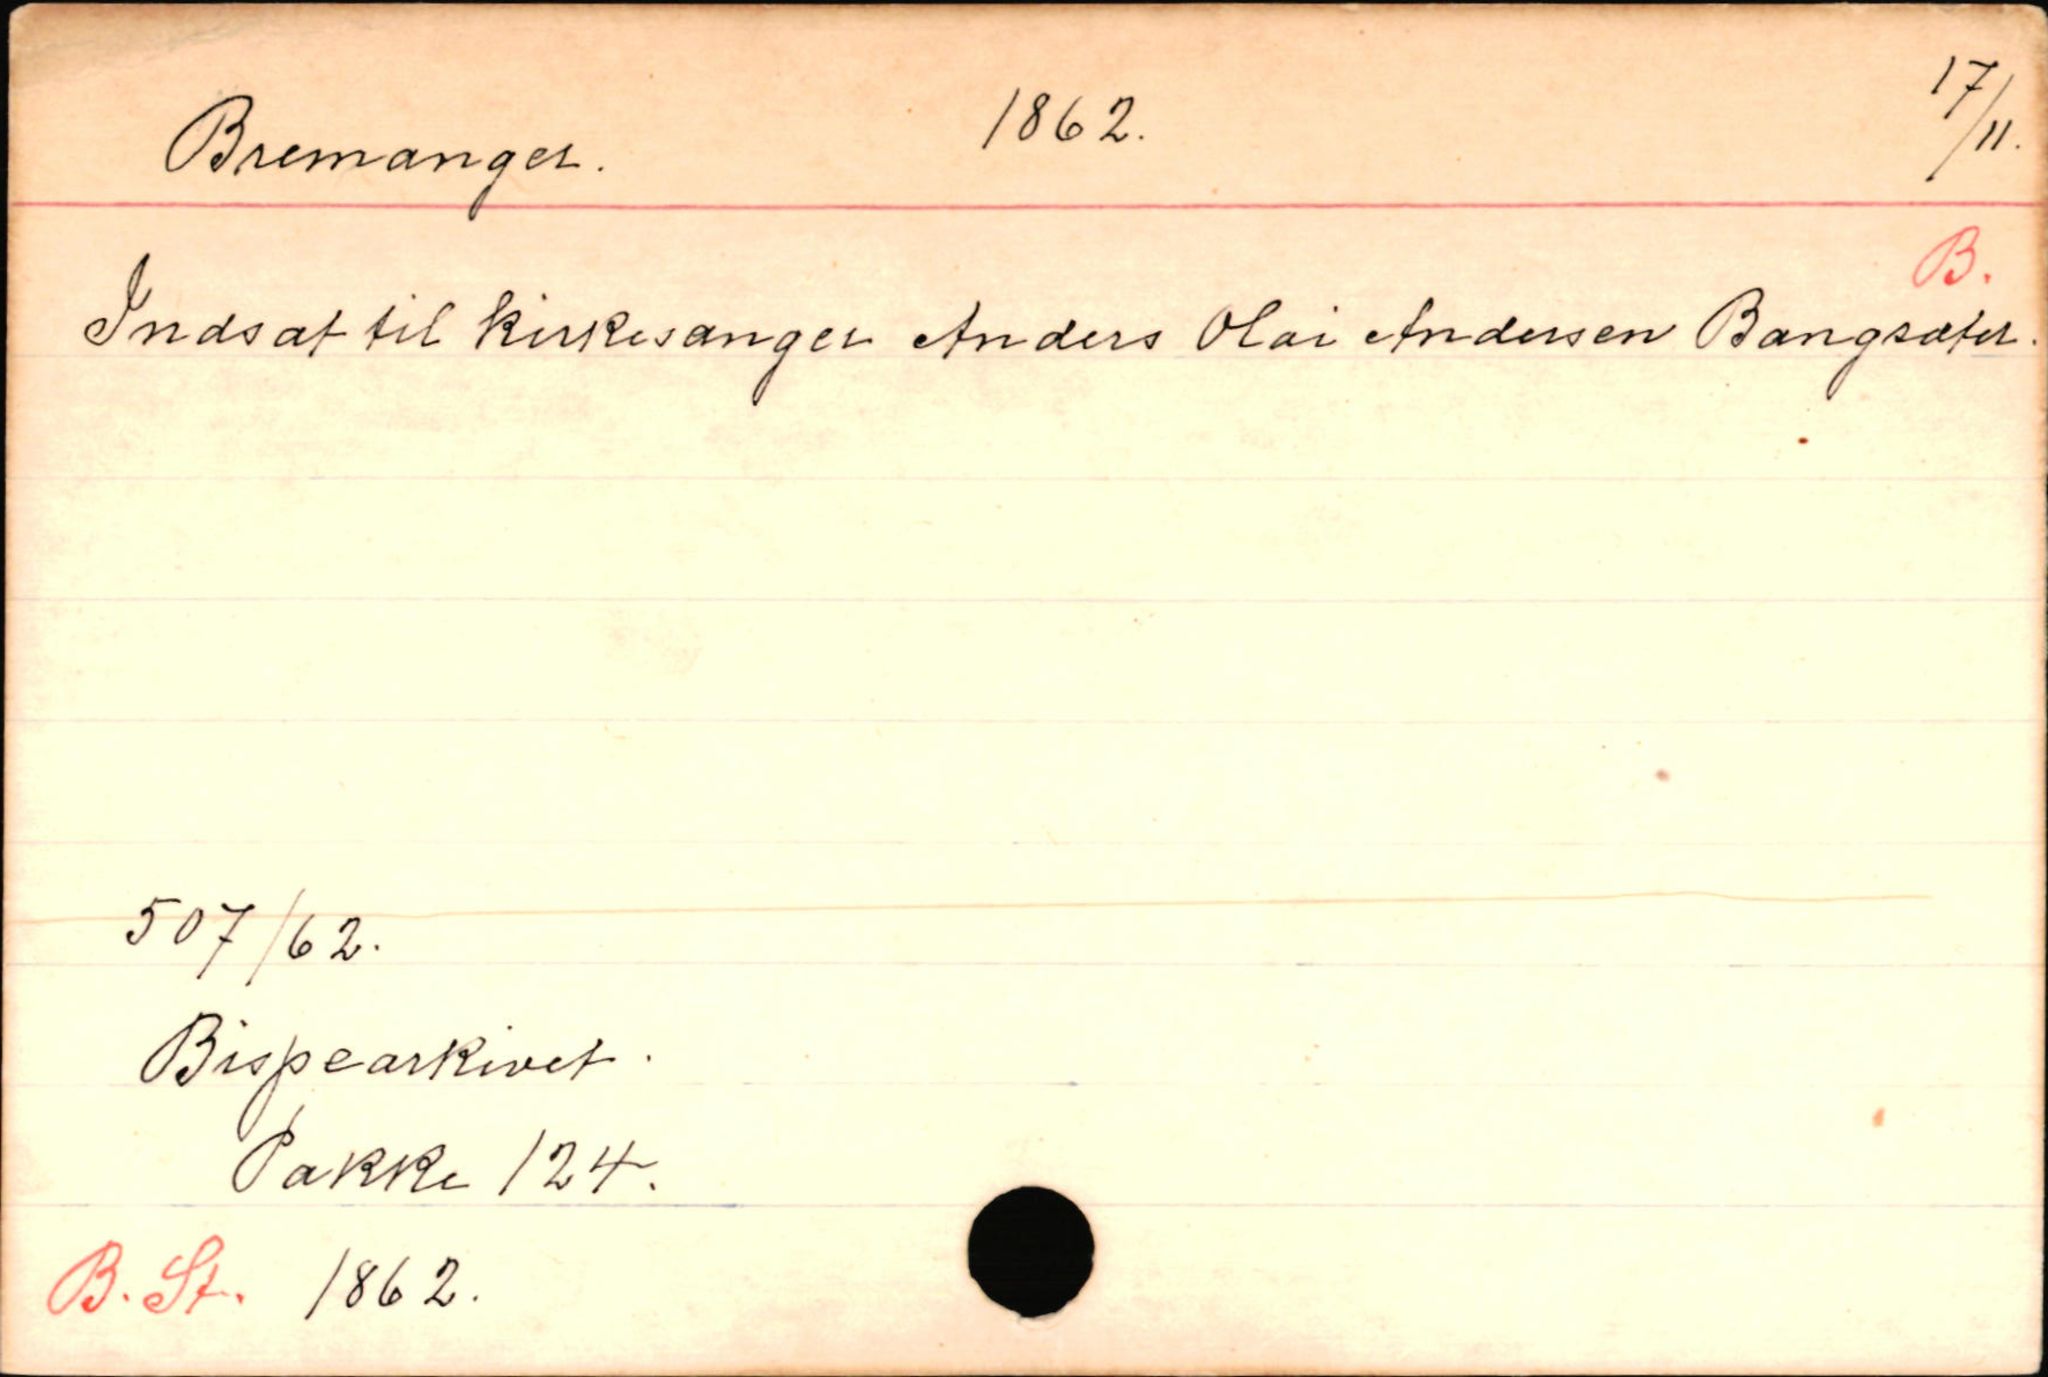 Bremanger. 1862. 17/11.
B.
Indsat til kirkesanger Anders Olai Andersen Bangsæter.
507/62.
Bispearkivet.
Pakke 124.
B. St. 1862.